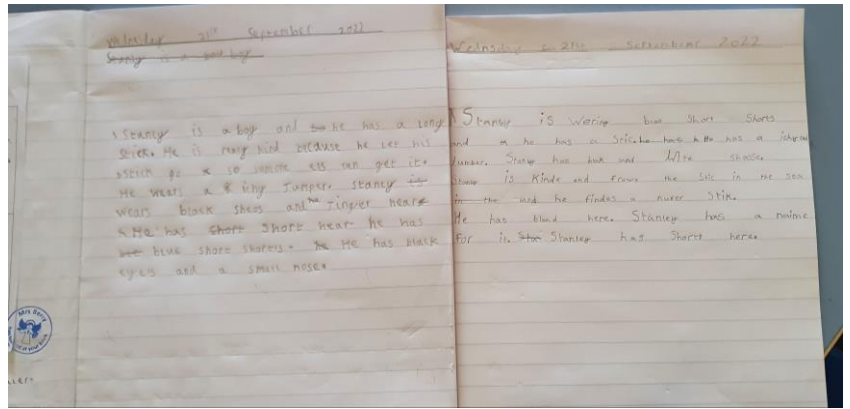 Wednesday 21st September 2022
Stanley is a good boy
Stanley is a boy and he has a long
stick. He is realy kind because he let his
stick go so someone els can get it.
He wears a Jumper. stanley is
wears black shoes and the Jinper hear
He has short short hear he has
blue short shorts. He He has black
eyes and a small nose.
Mrs Berry
Wednsday 21st September 2022
Stanley is Wering blue Short Shorts
and he has a Stic. he has he has a
Jumper. Stanley has and Wite shooes.
Stanley is Kinde and frows the Stic in the sea
in the and he findes a nuwer Stik.
He has blond here. Stanley has a naime
for it. Stanley has Short here.